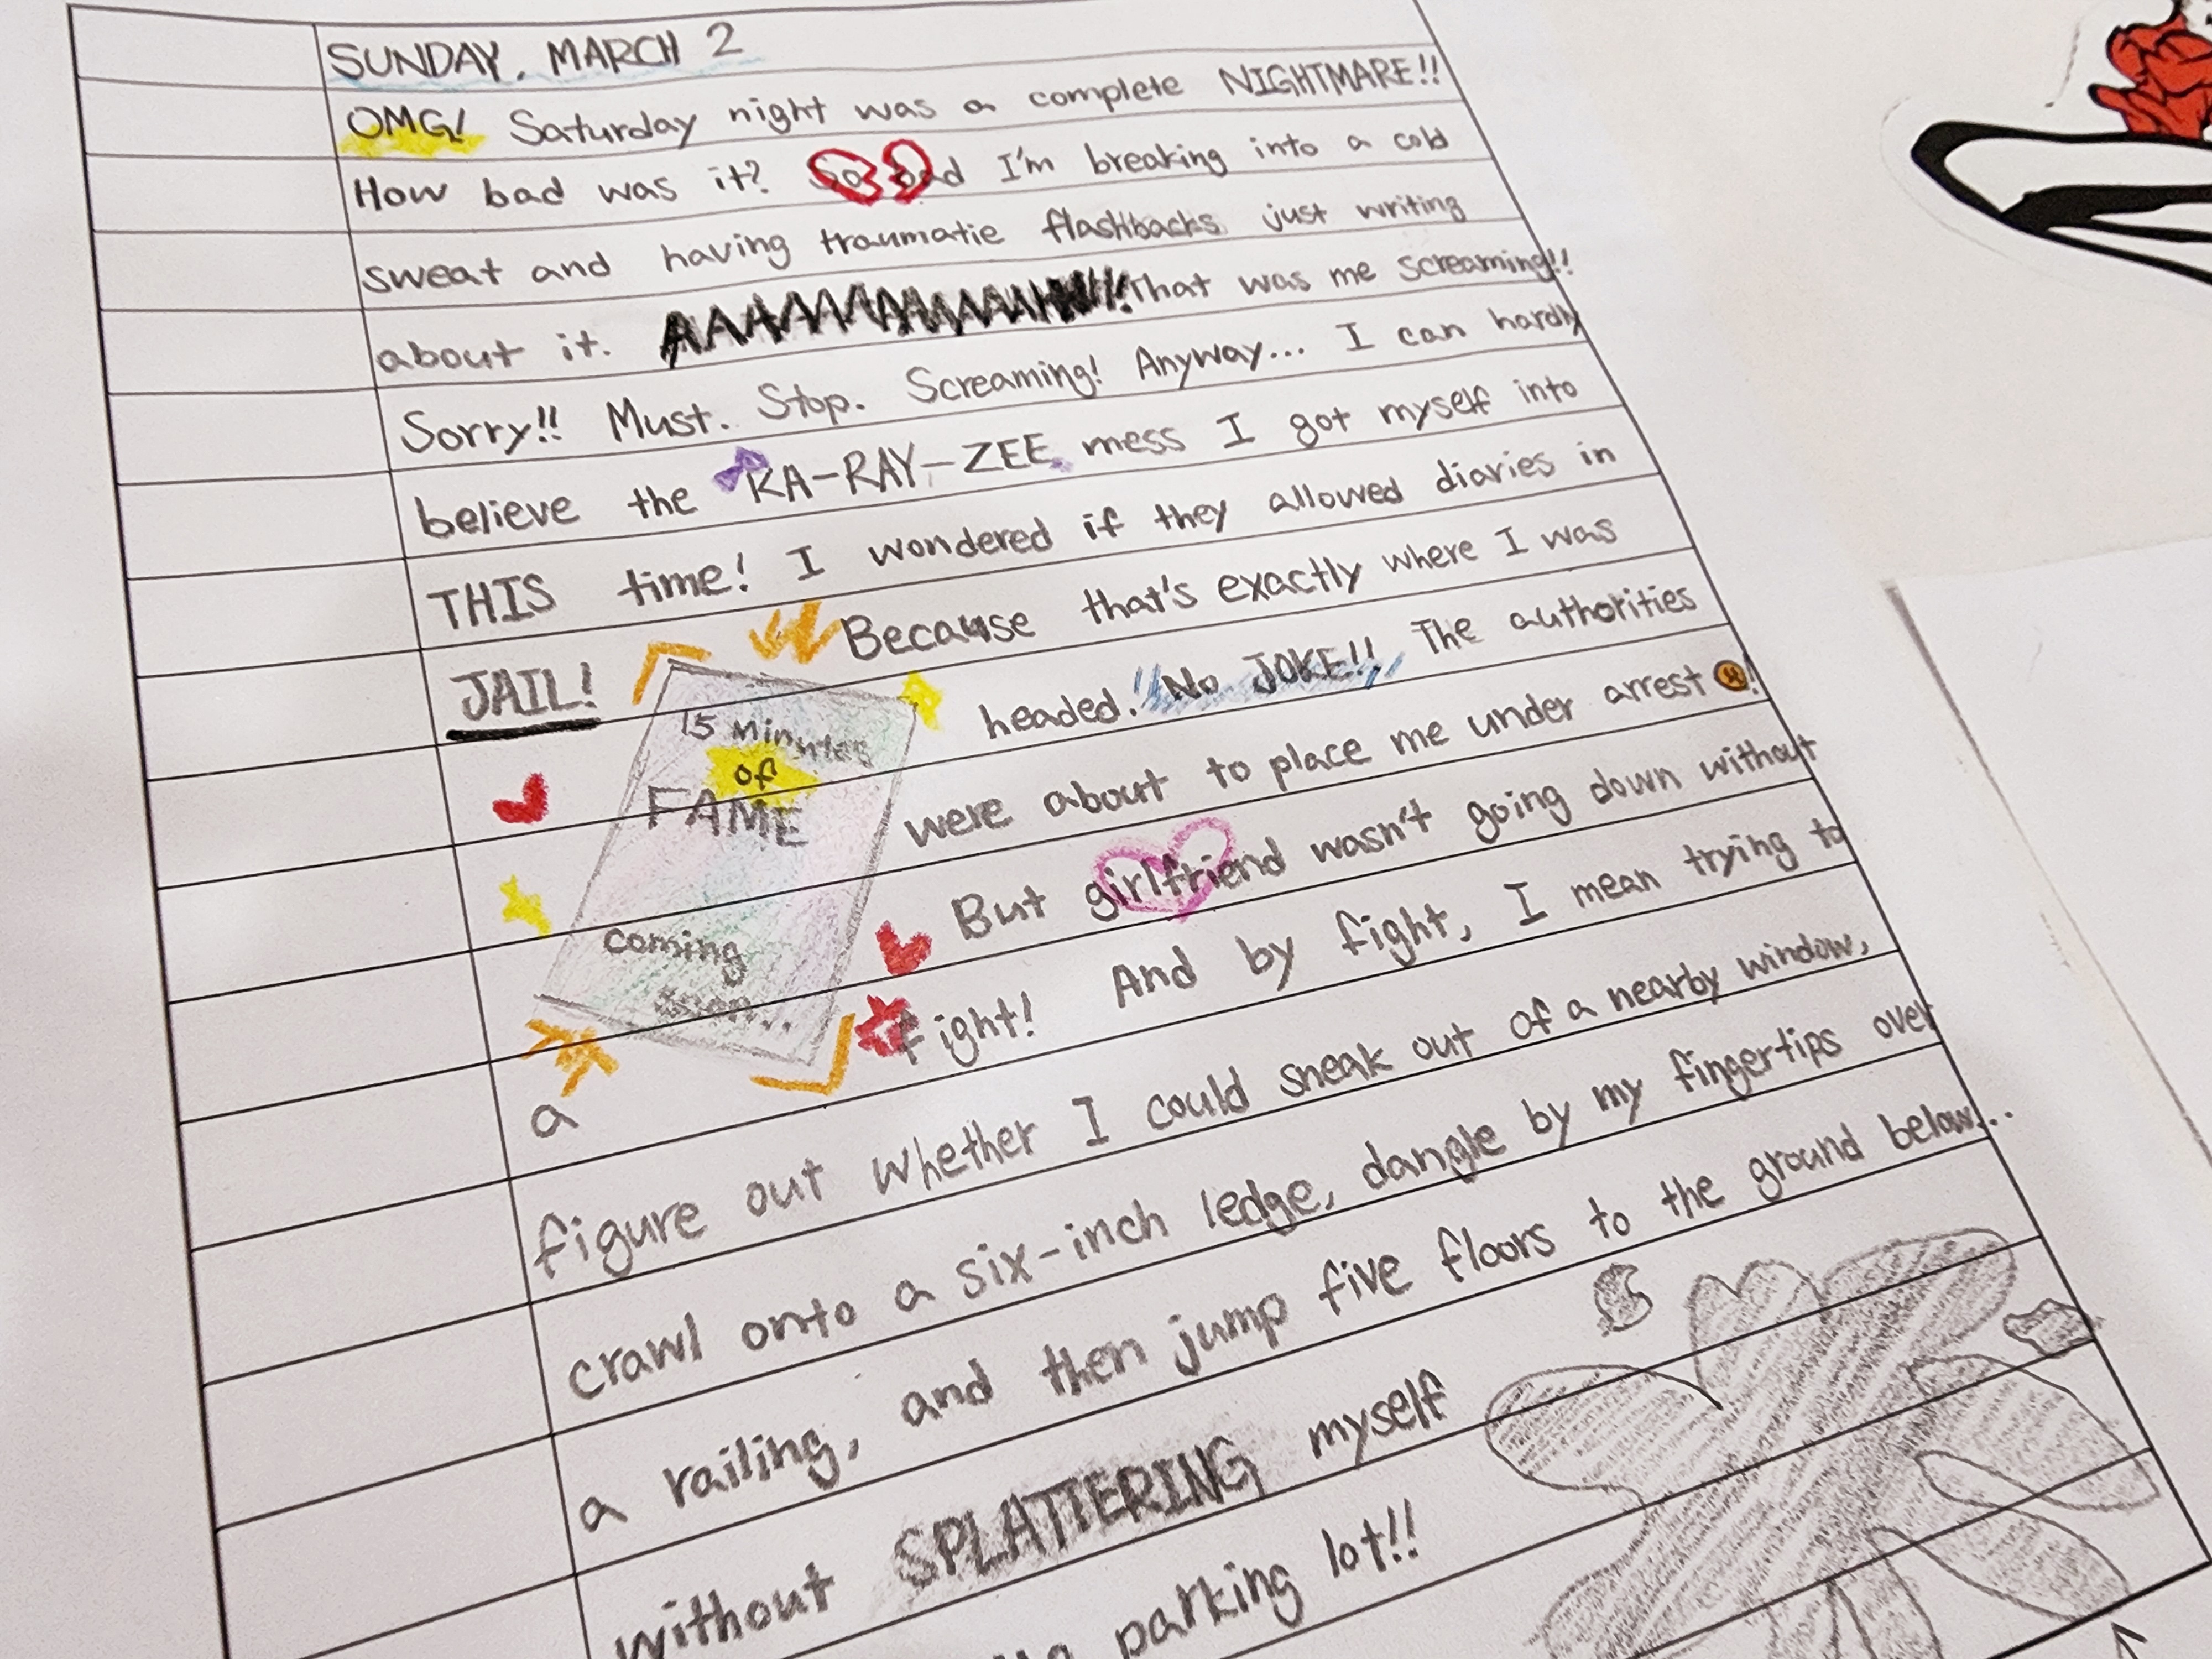 SUNDAY, MARCH 2
OMG! Saturday night was a complete NIGHTMARE!!
How bad was it? So bad I'm breaking into a cold
sweat and having traumatie flashbacks just writing
about it. That was me screaming!!
Sorry!! Must. Stop. Screaming! Anyway... I can hardly
believe the KA-RAY-ZEE mess I got myself into
THIS time! I wondered if they allowed diaries in
JAIL! Because that's exactly where I was
headed. No JOKE!! The authorities
were about to place me under arrest !
But girlfriend wasn't going down without
a fight! And by fight, I mean trying to
figure out whether I could sneak out of a nearby window,
crawl onto a six-inch ledge, dangle by my fingertips over
a railing, and then jump five floors to the ground below...
without SPLATTERING myself
parking lot!!
15 Minutes
of
FAME
coming
soon...